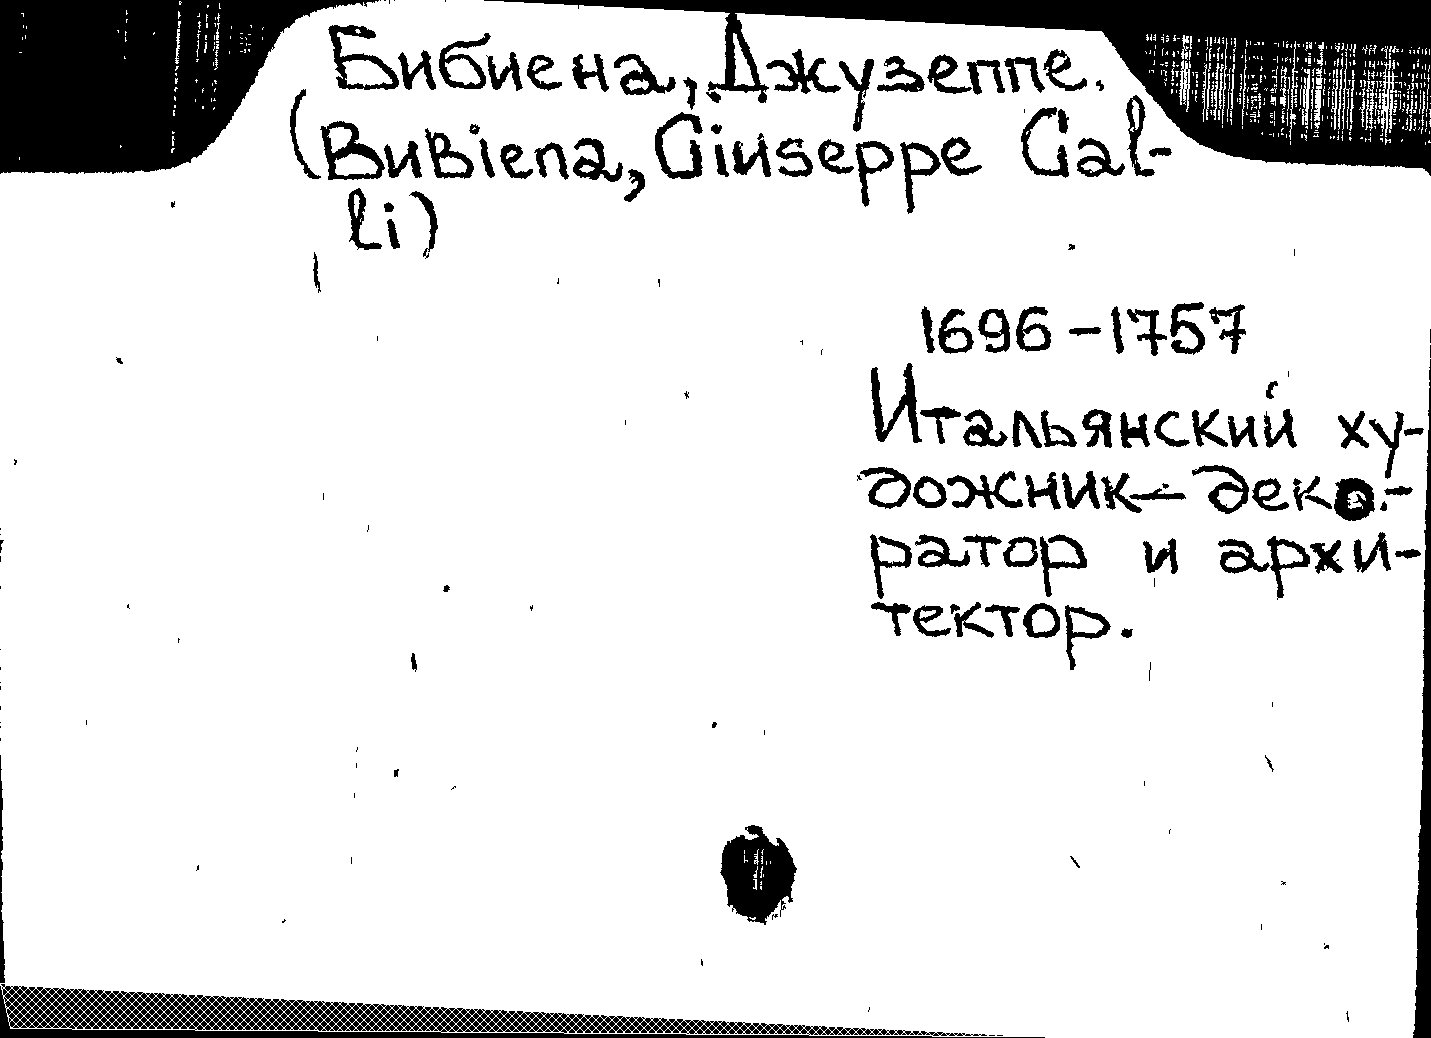 Бибиена, Джузеппе.
(BuBiena, Giuseppe Gal-
li)
1696-1757
Итальянский ху-
дожник-деко-
ратор и архи-
тектор.